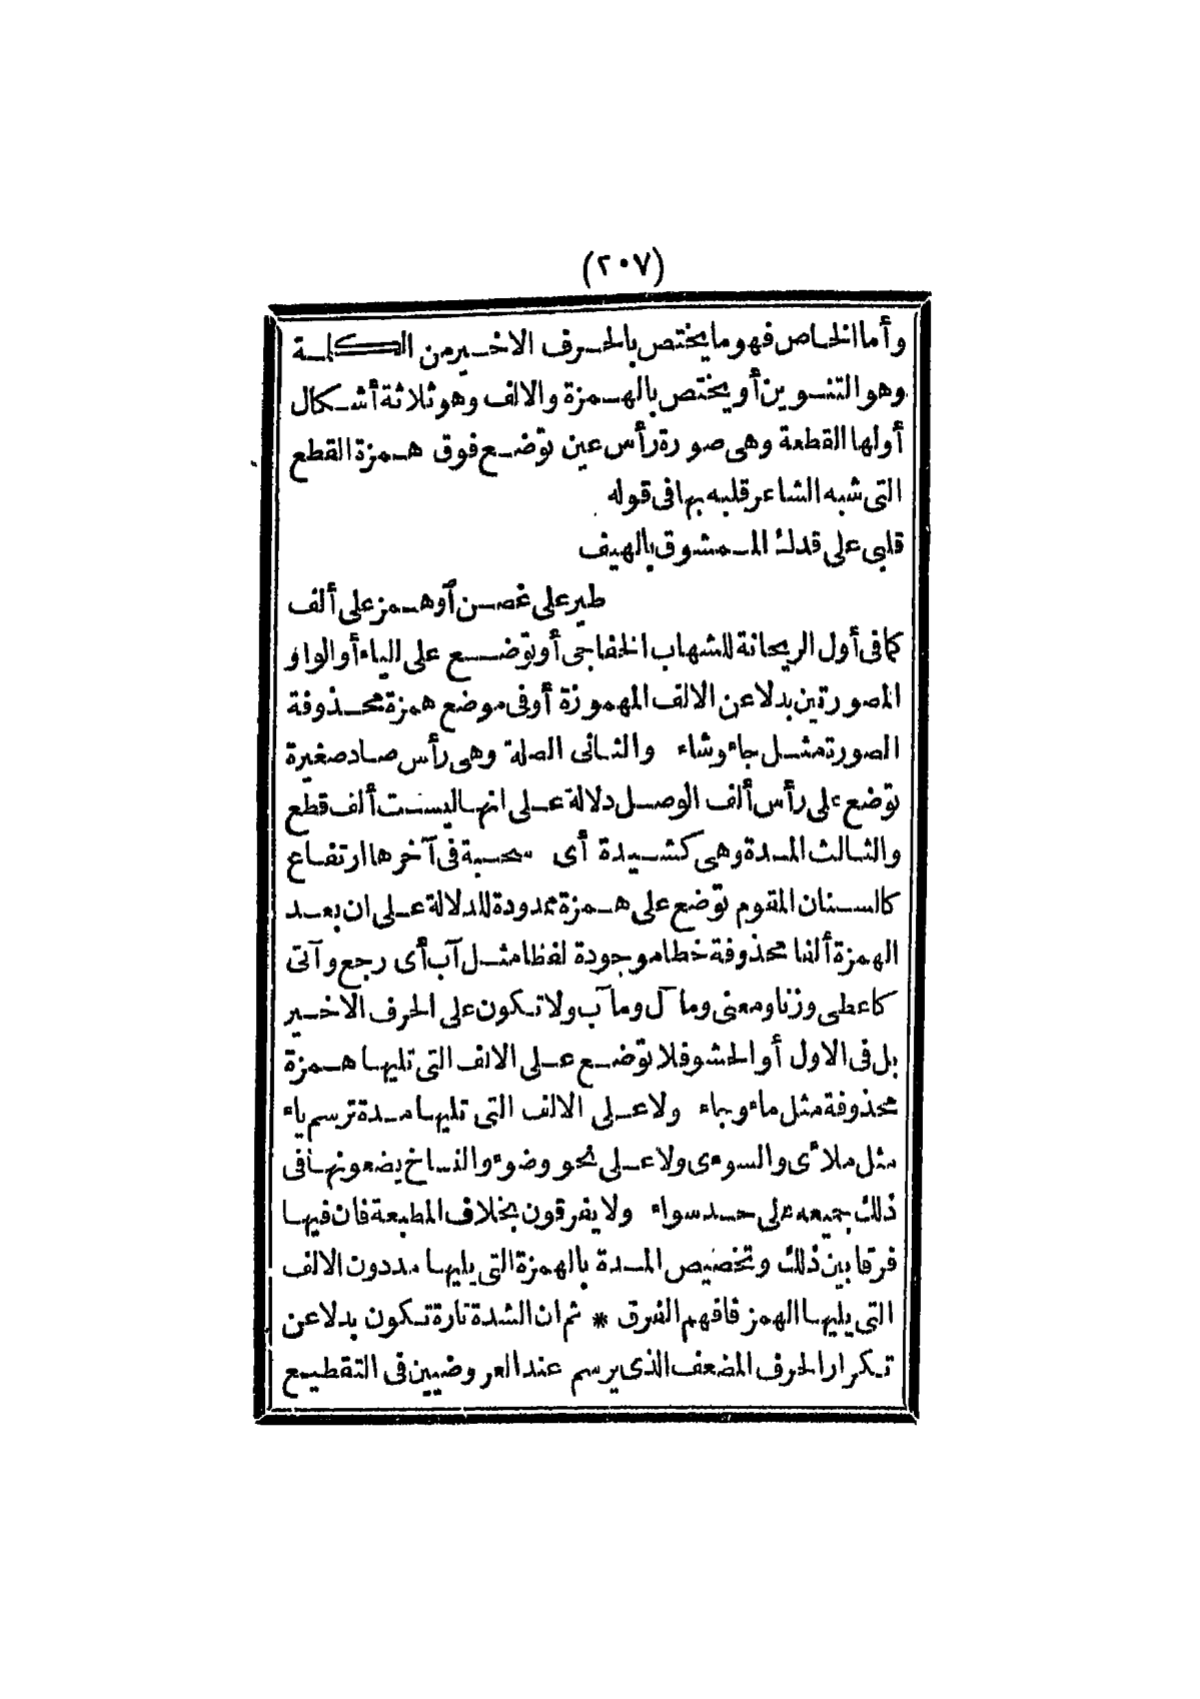 (٢٠٧)
وأما الخاص فهو ما يختص بالحرف الاخير من الكلمة
وهو التنوين أو يختص بالهمزة والالف وهو ثلاثة أشكال
أولها القطعة وهى صورة رأس عين توضع فوق همزة القطع
التى شبه الشاعر قلبه بها فى قوله
قلبى على قدك الممشوق بالهيف
طير على غصن أو همز على ألف
كما فى أول الريحانة للشهاب الخفاجى أو توضع على الياء أو الواو
المصورتين بدلا عن الالف المهموزة أو فى موضع همزة محذوفة
الصورة مثل جاء وشاء والثانى الصلة وهى رأس صاد صغيرة
توضع على رأس ألف الوصل دلالة على انها ليست ألف قطع
والثالث المدة وهى كشيدة أى سحبة فى آخرها ارتفاع
كالسنان المقوم توضع على همزة ممدودة للدلالة على ان بعد
الهمزة ألفا محذوفة خطا موجودة لفظا مثل آب أى رجع وآتى
كاعطى وزنا ومعنى ومآل ومآب ولا تكون على الحرف الاخير
بل فى الاول أو الحشو فلا توضع على الالف التى تليها همزة
محذوفة مثل ماء وجاء ولا على الالف التى تليها مدة ترسم ياء
مثل ملأى والسوءى ولا على نحو وضوء والنساخ يضعونها فى
ذلك جميعه على حد سواء ولا يفرقون بخلاف المطبعة فان فيها
فرقا بين ذلك وتخصيص المدة بالهمزة التى يليها مد دون الالف
التى يليها الهمز فافهم الفرق * ثم ان الشدة تارة تكون بدلا عن
تكرار الحرف المضعف الذى يرسم عند العروضيين فى التقطيع